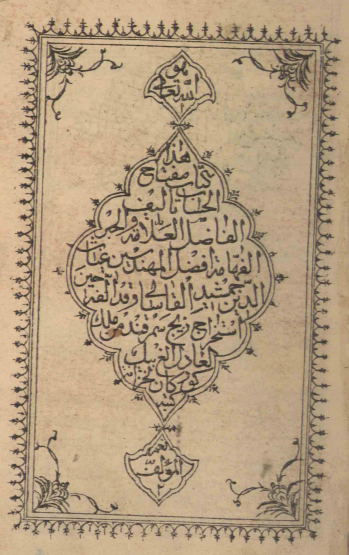 هو
الله تعالى
هذا
كتاب مفتاح
الحساب تأليف
الفاضل العلامة والحبر
الفهامة افضل المهندسين غياث
الدين جمشيد القاساني وقد الفه حين
استخراج زيج سمرقند من ملك
العادل الغ بيك
كوركان
المؤلف